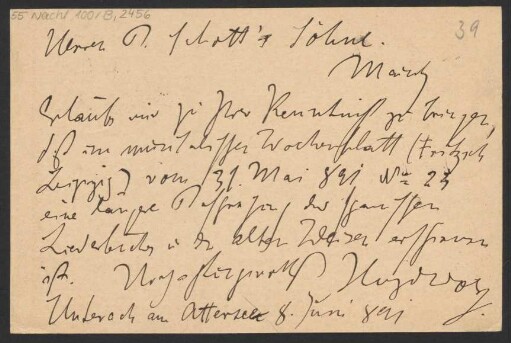 55 Nachl 100/B, 2456
39
Herren B. Schott's Söhne.
Mainz
Erlaube mir zu Ihrer Kenntniß zu bringen,
daß im musikalischen Wochenblatt (Fritzsch
Leipzig) vom 21. Mai 891 Nro 23
eine lange Besprechung des spanischen
Liederbuches u der alten Weisen erschienen
ist. Hochachtungsvoll Hugo Wolf
Unterach am Attersee 8. Juni 891